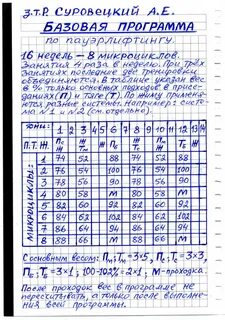 З.Т.Р. СУРОВЕЦКИЙ А.Е.
БАЗОВАЯ ПРОГРАММА
по пауэрлифтингу.
16 недель – 8 микроциклов.
Занятия 4 раза в неделю. При трёх
занятиях последние две тренировки
объединяются. В таблице указан вес
в % только основных подходов в присе-
даниях (П) и тяге (Т). По жиму применя-
ются разные системы. Например: систе-
ма №1 и №2 (см. отдельно).
ДНИ: 1 2 3 4 5 6 7 8 9 10 11 12 13 14
П.Т.Ж.
МИКРОЦИКЛЫ:
1 74 52 88 74 52 88
2 76 54 100 76 54 100
3 78 56 90 78 56 90
4 80 58 М 80 58 М
5 82 60 92 82 60 92
6 84 62 102 84 62 102
7 86 64 94 86 64 94
8 88 66 М 88 66 М
С основным весом:
100-102% = 2×1; М – проходка.
После проходок вес в программе не
пересчитывать, а только после выполне-
ния всей программы.